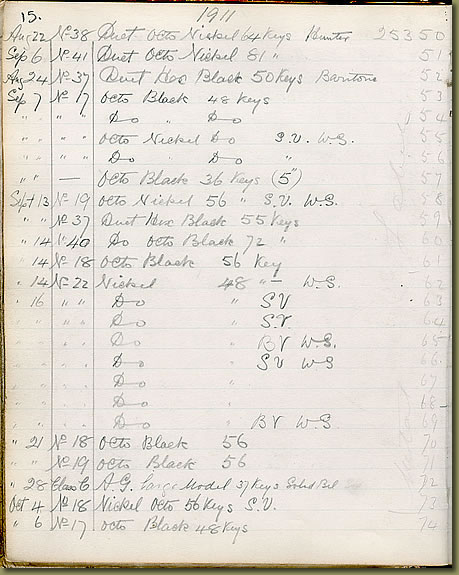 15. 1911
Aug 22 No 38 Duet Octo Nickel 64 Keys 25350
Sep 6 No 41 Duet Octo Nickel 81 " 51
Aug 24 No 37 Duet Hex Black 50 Keys Baritone 52
Sep 7 No 17 Octo Black 48 Keys 53
" " " " Do " Do 54
" " " " Octo Nickel Do S.V. W.S. 55
" " " " Do Do " 56
" " — Octo Black 36 Keys (5") 57
Sept 13 No 19 Octo Nickel 56 " S.V. W.S. 58
" " No 37 Duet Hex Black 55 Keys 59
" 14 " 40 Do Octo Black 72 " 60
" 14 No 18 Octo Black 56 Key 61
" 14 No 22 Nickel 48 " — W.S. 62
" 16 " " Do " S V 63
" " " " Do " S.V. 64
" " " " Do " B V W.S. 65
" " " " Do " S V W S 66
" " " " Do " 67
" " " " Do " 68
" " " " Do " B V W.S. 69
" 21 No 18 Octo Black 56 70
" " No 19 Octo Black 56 71
" 28 Class C A.G. Large Model 37 Keys Solid Bel 72
Oct 4 No 18 Nickel Octo 56 Keys S.V. 73
" 6 No 17 Octo Black 48 Keys 74